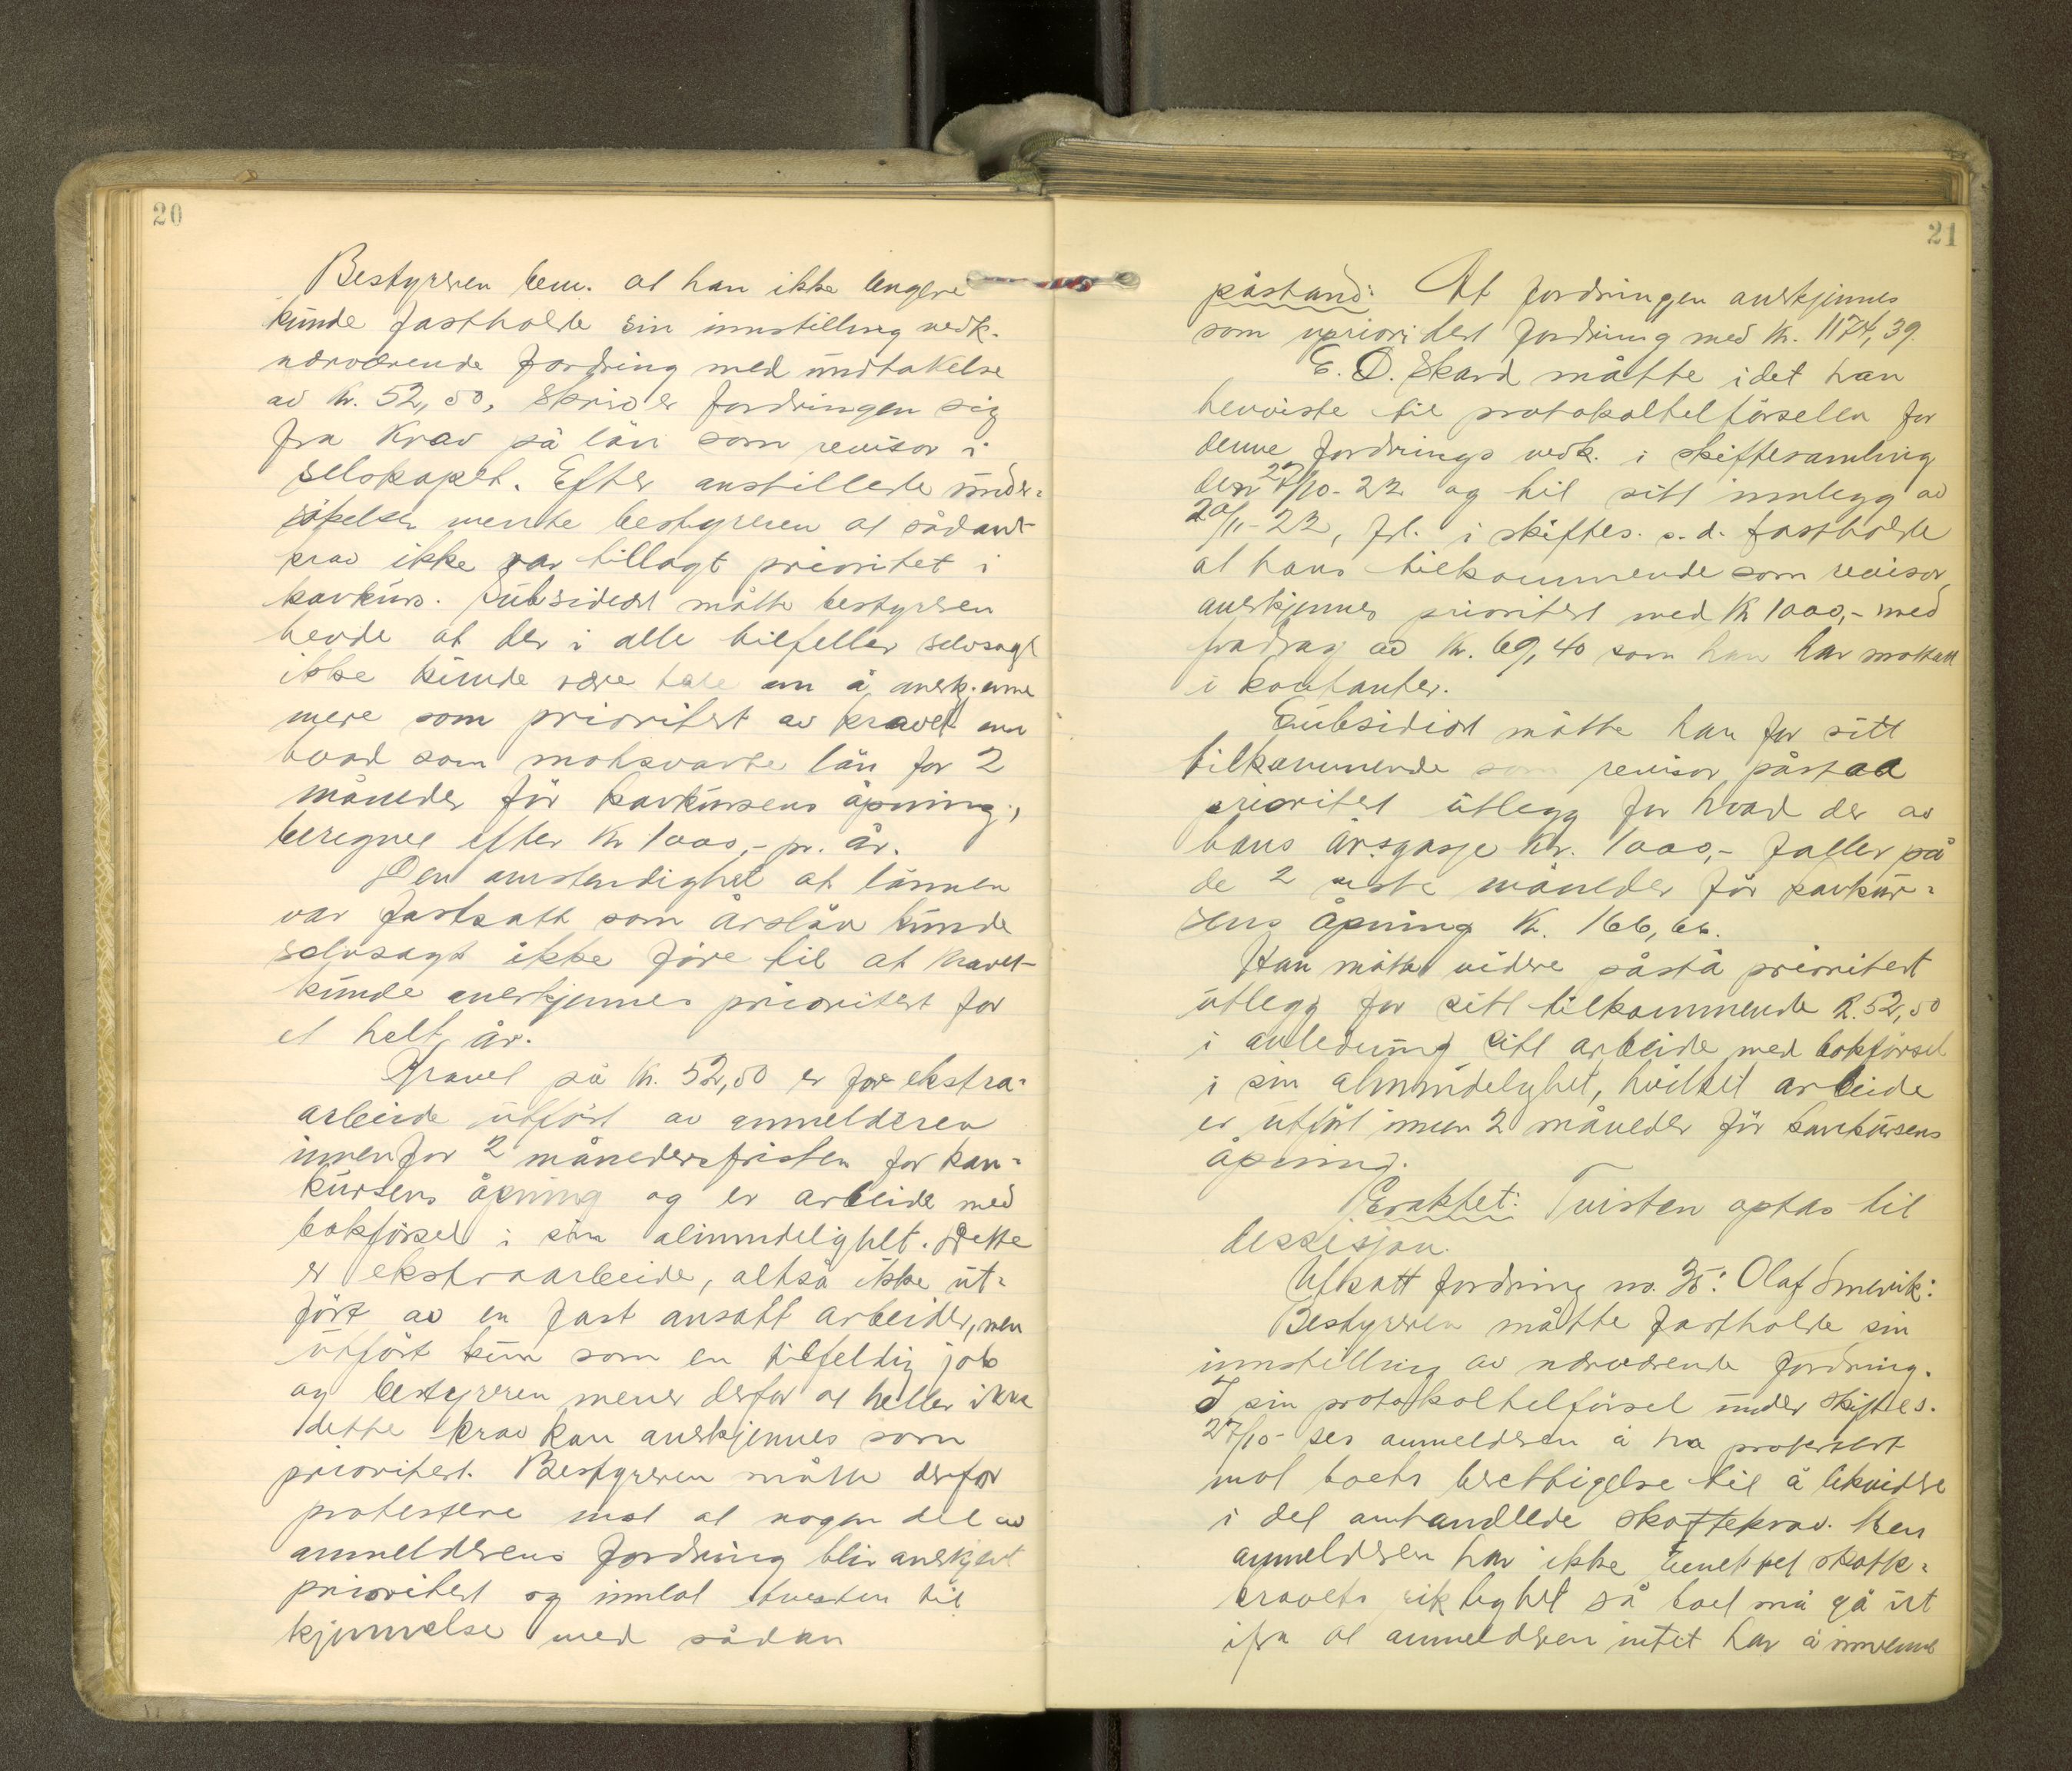 20
Bestyreren bem. at han ikke lengere
kunde fastholde sin innstilling vedk.
nærværende fordring med undtakelse
av kr. 52,50, skriver fordringen sig
fra krav på lön som revisor i
selskapet. Efter anstillede under-
søkelser mente bestyreren at sådant
krav ikke var tillagt prioritet i
konkurs. Subsidiært måtte bestyreren
hevde at der i alle tilfeller selvsagt
ikke kunde være tale om å anerkjenne
mere som prioritert av kravet enn
hvad som motsvarte lön for 2
måneder för konkursens åpning,
beregnet efter kr 1000,- pr. år.
Den omstendighet at lönnen
var fastsatt som årslön kunde
selvsagt ikke före til at kravet
kunde anerkjennes prioritert for
et helt år.
Kravet på kr. 52,50 er for ekstra-
arbeide utfört av anmelderen
innenfor 2 månedersfristen for kon-
kursens åpning og er arbeide med
bokförsel i sin alminndelighet. Dette
er ekstraarbeide, altså ikke ut-
fört av en fast ansatt arbeider, men
utfört kun som en tilfeldig job
og bestyreren mener derfor at heller ikke
dette krav kan anerkjennes som
prioritert. Bestyreren måtte derfor
protestere mot at nogen del av
anmelderens fordring blir anerkjent
prioritert og innlot tvisten til
kjennelse med sådan
21
påstand: At fordringen anerkjennes
som uprioritert fordring med kr. 1174,39.
E. D. Skard måtte idet han
henviste til protokoltilförselen for
denne fordrings vedk. i skiftesamling
den 27/10-22 og til sitt innlegg av
20/11-22, frl. i skiftes. s.d. fastholde
at hans tilkommende som revisor,
anerkjennes prioritert med kr 1000,- med
fradrag av kr. 69,40 som han har mottatt
i kontanter.
Subsidiært måtte han for sitt
tilkommende som revisor påstaa
prioritert utlegg for hvad der av
hans årsgasje kr. 1000,- faller på
de 2 siste måneder för konkur-
sens åpning kr. 166,66.
Han måtte videre påstå prioritert
utlegg for sitt tilkommende k. 52,50
i anledning sitt arbeide med bokförsel
i sin alminndelighet, hvilket arbeide
er utfört innen 2 måneder för konkursens
åpning.
Eraktet: Tvisten optas til
dessisjon.
Utsatt fordring no. 35: Olaf Smevik:
Bestyreren måtte fastholde sin
innstilling av nærværende fordring.
I sin protokoltilförsel under skiftes.
27/10- ses anmelderen å ha protestert
mot boets berettigelse til å likvidere
i det omhandlede skattekrav. Men
anmelderen har ikke benektet skatte-
kravets riktighet så boet må gå ut
ifra at anmelderen intet har å innvende